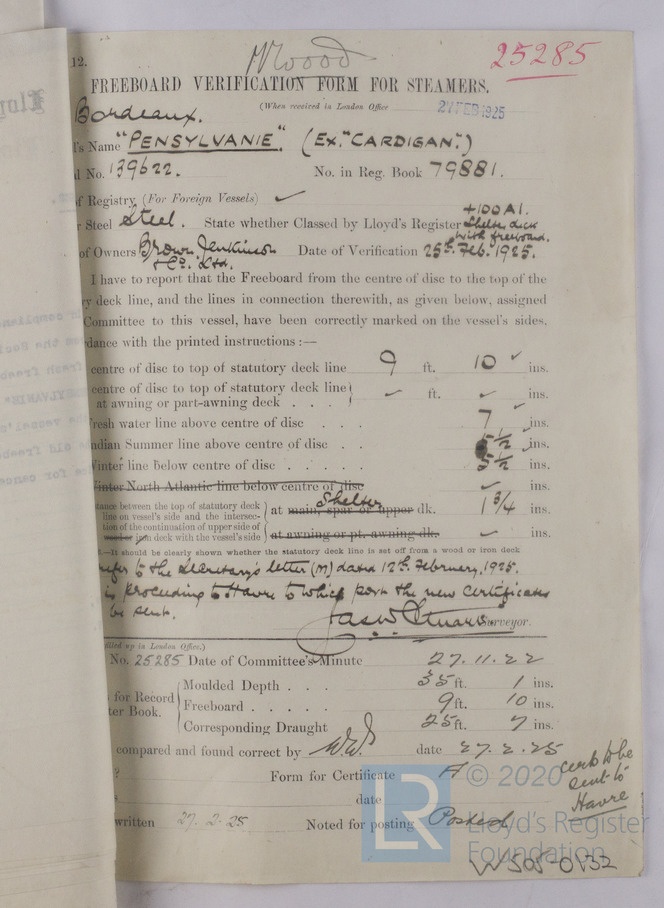 12.
Wood
25285
FREEBOARD VERIFICATION FORM FOR STEAMERS.
(When received in London Office 27 FEB 1925
Bordeaux.
's Name "PENSYLVANIE". (Ex. "CARDIGAN".)
l No. 139622. No. in Reg. Book 79881.
f Registry (For Foreign Vessels) ✓
r Steel Steel. State whether Classed by Lloyd's Register +100A1. Shelter deck with freeboard.
of Owners Brown Jenkinson & Co. Ltd. Date of Verification 25th Feb. 1925.
I have to report that the Freeboard from the centre of disc to the top of the
ry deck line, and the lines in connection therewith, as given below, assigned
Committee to this vessel, have been correctly marked on the vessel's sides,
dance with the printed instructions:—
centre of disc to top of statutory deck line 9 ft. 10 ✓ ins.
centre of disc to top of statutory deck line
at awning or part-awning deck . . . ✓ ft. ✓ ins.
resh water line above centre of disc . . . 7 ✓ ins.
ndian Summer line above centre of disc . . 5½ ✓ ins.
Winter line below centre of disc . . . . . 5½ ins.
Winter North Atlantic line below centre of disc ✓ ins.
stance between the top of statutory deck
line on vessel's side and the intersec-
tion of the continuation of upper side of
wood or iron deck with the vessel's side
at main, spar or upper Shelter dk. 1¾ ins.
at awning or pt. awning dk. ✓ ins.
.—It should be clearly shown whether the statutory deck line is set off from a wood or iron deck
refer to the Secretary's letter (M) dated 12th February, 1925.
is proceeding to Havre to which port the new certificates
be sent.
Jas W Stuart Surveyor.
filled up in London Office.)
No. 25285 Date of Committee's Minute 27.11.22
Moulded Depth . . . 35 ft. 1 ins.
for Record
ter Book.
Freeboard . . . . . 9 ft. 10 ins.
Corresponding Draught 25 ft. 7 ins.
compared and found correct by date 27.2.25
Form for Certificate A
certs to be
sent to
Havre
date
written 27.2.25 Noted for posting Posted
LR
© 2020
Lloyd's Register
Foundation
W505-0132